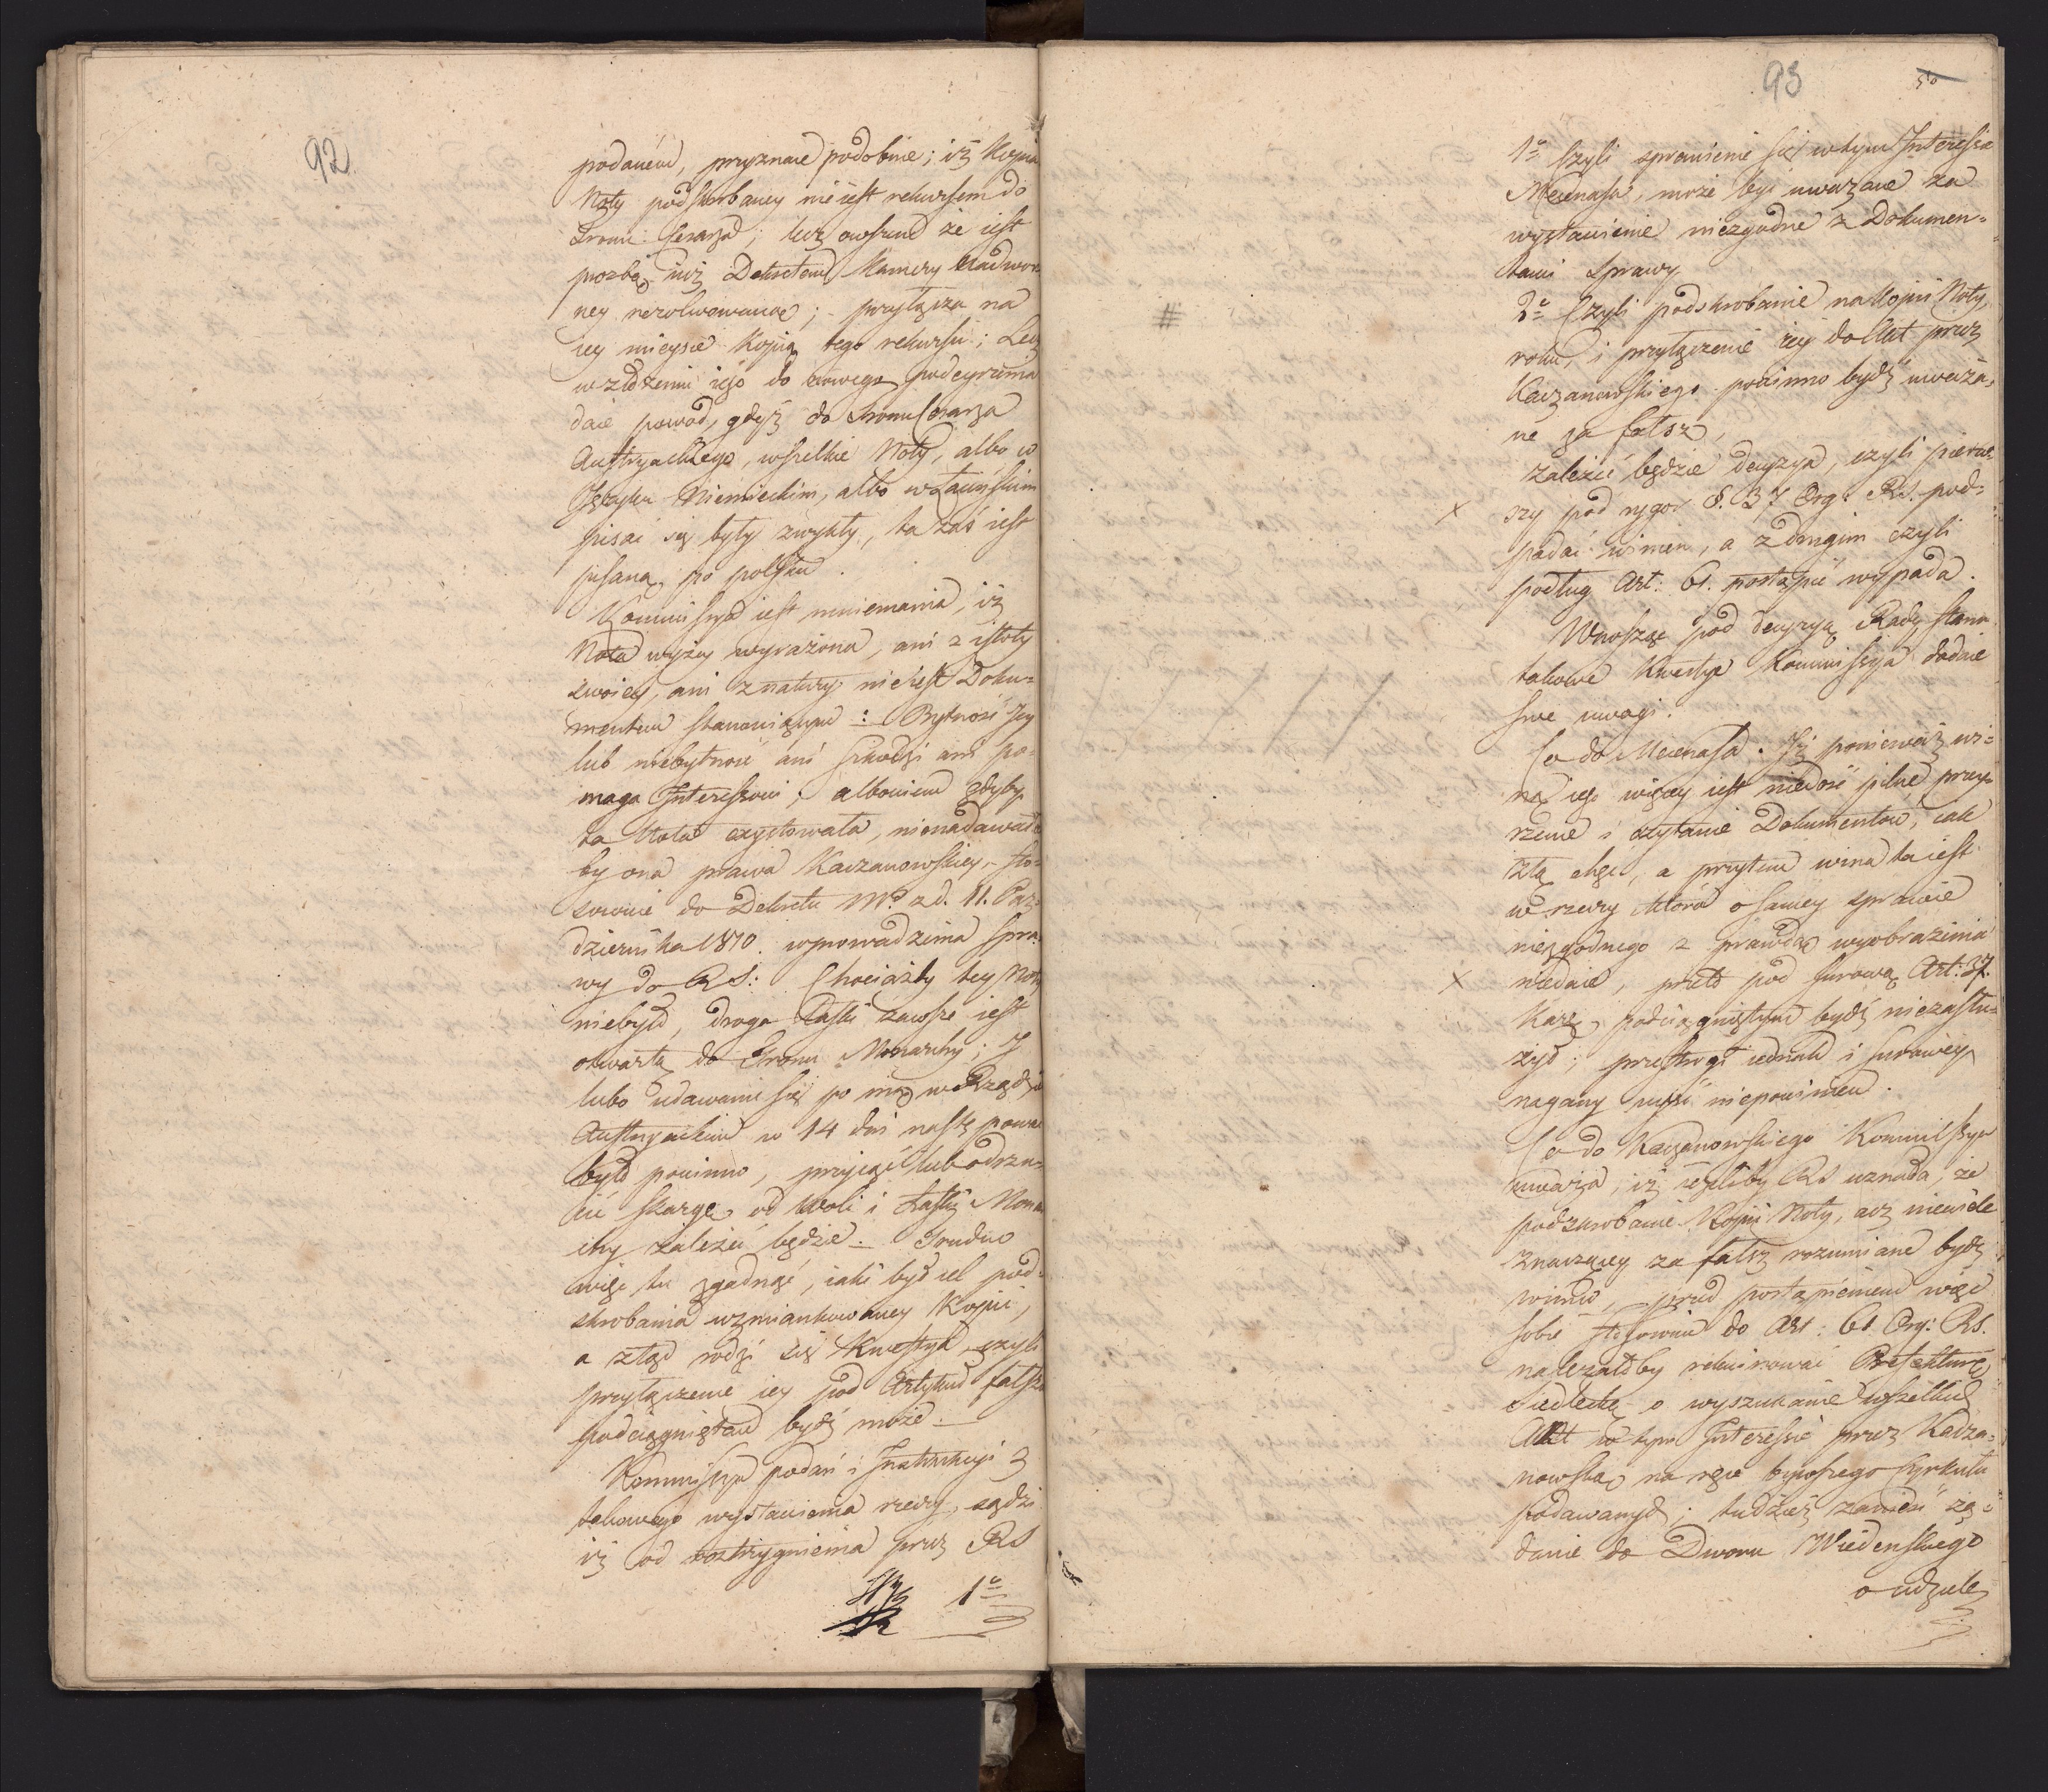 92
podanem, przyznaie podobnie; iż Kopia
Noty podskrobaney nie iest rekursem do
Tronu Cesarza; lecz owszem że iest
prozbą iuż Dekretem Kamery Nadwor=
ney rezolwowaną; - przyłącza na
iey mieysce Kopią tego rekursu; Lecz
w złożeniu iego do nowego podeyrzenia
daie powod, gdyż do Tronu Cesarza
Austryackiego, wszelkie Noty, albo w
Języku Niemieckim, albo w Łacińskim
pisać się były zwykły, ta zaś iest
pisaną po polsku.
Kommissya iest mniemania, iż
Nota wyżey wyrażona, ani z istoty
swoiey, ani z natury nie iest Doku=
mentem stanowiącym: Bytność Jey
lub niebytność ani szkodzi ani po=
maga Interessowi, albowiem gdyby
ta Nota exystowała, nienadawała
by ona prawa Kaczanowskiey, - sto=
sownie do Dekretu Mo. z d. 11. Paź=
dziernika 1810. wprowadzenia spra=
wy do RS: Chociażby tey Noty
niebyło, droga Łaski zawsze iest
otwartą do Tronu Monarchy; I
lubo udawanie się po nią w Rządzie
Austryackim w 14 dni nastąpować
było powinno, przyjąć lub odrzu=
cić skargę od woli i Łaski Monar
chy zależeć będzie. - Trudno
więc tu zgadnąć, iaki był cel pod=
skrobania wzmiankowaney Kopii,
a ztąd rodzi się Kwestya, czyli
przyłączenie iey pod Artykuł fałszu
podciągniętem bydź może. -
Kommissya podań i Instrukcyi z
takowego wystawienia rzeczy, sądzi
iż od rozstrzygnienia przez RS
1o
93
50
1o Czyli sprawienie się w tym Interessie
Mecenasa, może być uważane za
wystawienie niezgodne z Dokumen=
tami sprawy.
#
2o Czyli podskrobanie na Kopii Noty,
roku, i przyłączenie iey do Akt przez
Kaczanowskiego powinno bydź uważa=
ne za fałsz,
zależeć będzie decyzya, czyli pierw=
x szy pod rygor §. 37 Org: RS. pod=
padać winien, a z drugim czyli
podług Art: 61. postąpić wypada.
Wnosząc pod decyzyą Rady Stanu
takowe Kwestye Kommissya dodaie
swe uwagi.
Co do Mecenasa. Iż ponieważ wi=
ną iego więcey iest niedość pilne przey=
rzenie i czytanie Dokumentow, iak
zła chęć, a przytem wina ta iest
w rzeczy która o samey sprawie
niezgodnego z prawdą wyobrażenia
x niedaie, przeto pod surową Art: 37.
Karę podciągniętym bydź niezasłu=
żył; przestrogi iednak i surowey
nagany uyść niepowinien.
Co do Kaczanowskiego Kommissya
uważa, iż ieżeliby RS uznała, że
podskrobanie Kopii Noty, acz niewiele
znaczącey za fałsz rozumiane bydź
winno, przed postąpieniem więc
sobie stosownie do Art: 61. Org: RS.
należałoby rekwirować Prefekturę
Siedlecką o wyszukanie wszelkich
Akt w tym Interessie przez Kacza=
nowską na ręce bywszego Cyrkułu
podawanych; tudzież zanieść żą=
danie do Dworu Wiedeńskiego
o udziele